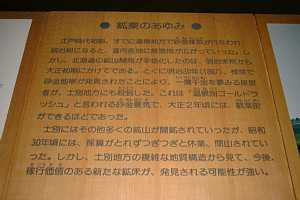 ● 鉱業のあゆみ ●
江戸時代初期、すでに道南地方で砂金採取が行なわれ、
明治初になると、道内各地に鉱物熱が広がっていった。し
かし、北海道の鉱山開発が本格化したのは、明治末期から
大正初期にかけてである。とくに明治33年(1900)、枝幸で
砂金地帯が発見されたことにより、一攫千金を夢みる採掘
者が、士別地方にも殺到した。これは "温根別ゴールドラ
ッシュ" と言われる砂金景気で、大正2年頃には、歓楽街
ができるほどであった。
士別にはその他多くの鉱山が開鉱されていったが、昭和
30年頃には、採算がとれずつぎつぎと休業、閉山されてい
った。しかし、士別地方の複雑な地質構造から見て、今後、
稼行価値のある新たな鉱床が、発見される可能性が強い。